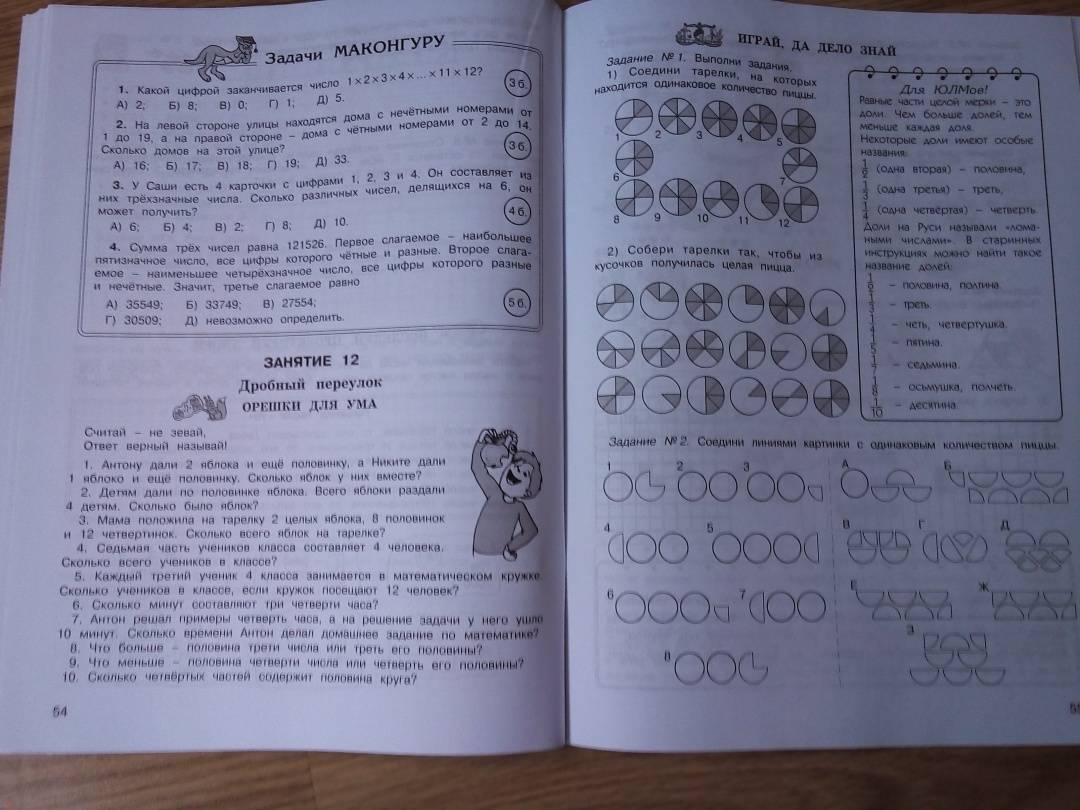 Задачи МАКОНГУРУ
1. Какой цифрой заканчивается число 1×2×3×4×...×11×12?
3 б.
А) 2; Б) 8; В) 0; Г) 1; Д) 5.
2. На левой стороне улицы находятся дома с нечётными номерами от
1 до 19, а на правой стороне – дома с чётными номерами от 2 до 14.
Сколько домов на этой улице?
3 б.
А) 16; Б) 17; В) 18; Г) 19; Д) 33.
3. У Саши есть 4 карточки с цифрами 1, 2, 3 и 4. Он составляет из
них трёхзначные числа. Сколько различных чисел, делящихся на 6, он
может получить?
4 б.
А) 6; Б) 4; В) 2; Г) 8; Д) 10.
4. Сумма трёх чисел равна 121526. Первое слагаемое – наибольшее
пятизначное число, все цифры которого чётные и разные. Второе слага-
емое – наименьшее четырёхзначное число, все цифры которого разные
и нечётные. Значит, третье слагаемое равно
А) 35549; Б) 33749; В) 27554;
5 б.
Г) 30509; Д) невозможно определить.
ЗАНЯТИЕ 12
Дробный переулок
ОРЕШКИ ДЛЯ УМА
Считай – не зевай,
Ответ верный называй!
1. Антону дали 2 яблока и ещё половинку, а Никите дали
1 яблоко и ещё половинку. Сколько яблок у них вместе?
2. Детям дали по половинке яблока. Всего яблоки раздали
4 детям. Сколько было яблок?
3. Мама положила на тарелку 2 целых яблока, 8 половинок
и 12 четвертинок. Сколько всего яблок на тарелке?
4. Седьмая часть учеников класса составляет 4 человека.
Сколько всего учеников в классе?
5. Каждый третий ученик 4 класса занимается в математическом кружке.
Сколько учеников в классе, если кружок посещают 12 человек?
6. Сколько минут составляют три четверти часа?
7. Антон решал примеры четверть часа, а на решение задачи у него ушло
10 минут. Сколько времени Антон делал домашнее задание по математике?
8. Что больше – половина трети числа или треть его половины?
9. Что меньше – половина четверти числа или четверть его половины?
10. Сколько четвёртых частей содержит половина круга?
54
ИГРАЙ, ДА ДЕЛО ЗНАЙ
Задание № 1. Выполни задания.
1) Соедини тарелки, на которых
находится одинаковое количество пиццы.
1 2 3 4 5
6 7
8 9 10 11 12
2) Собери тарелки так, чтобы из
кусочков получилась целая пицца.
Для ЮЛМов!
Равные части целой мерки – это
доли. Чем больше долей, тем
меньше каждая доля.
Некоторые доли имеют особые
названия:
1/2 (одна вторая) – половина,
1/3 (одна третья) – треть,
1/4 (одна четвёртая) – четверть.
Доли на Руси называли «лома-
ными числами». В старинных
инструкциях можно найти такое
название долей:
– половина, полтина.
– треть.
– четь, четвертушка.
– пятина.
– седьмина.
– осьмушка, полчеть.
1/10 – десятина.
Задание № 2. Соедини линиями картинки с одинаковым количеством пиццы.
1 2 3 А Б
4 5 В Г Д
6 7 Е Ж
8 З